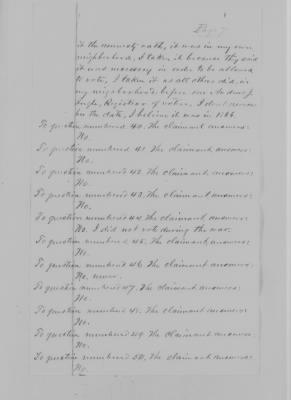 Page 7
it the amnesty oath, it was in my own
neighborhood, I taken it because they said
it was necessary in order to be allowed
to vote, I taken it as all others did, in
my neigborhood before one Andrew J.
Registrar of voters. I dont
the date, I believe it was in 1866.
To question numbered 40. The claimant answers:
No.
To question numbered 41. The claimant answers:
No.
To question numbered 42. The claimant answers:
No.
To question numbered 43. The claimant answers:
No.
To question numbered 44. The claimant answers:
No. I did not vote during the war.
To question numbered 45. The claimant answers:
No.
To question numbered 46. The claimant answers:
No, never.
To question numbered 47. The claimant answers:
No.
To question numbered 48. The claimant answers:
No.
To question numbered 49. The claimant answers:
No.
To question numbered 50. The claimant answers:
No.